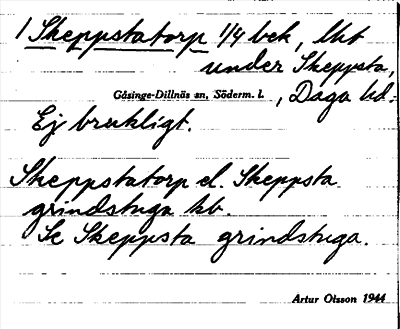 1 Skeppstatorp 1/4 bek, lht
under Skeppsta,
Gåsinge-Dillnäs sn, Söderm. l. , Daga hd.
Ej brukligt.
Skeppstatorp el. Skeppsta
grindstuga kb.
Se Skeppsta grindstuga.
Artur Olsson 1944